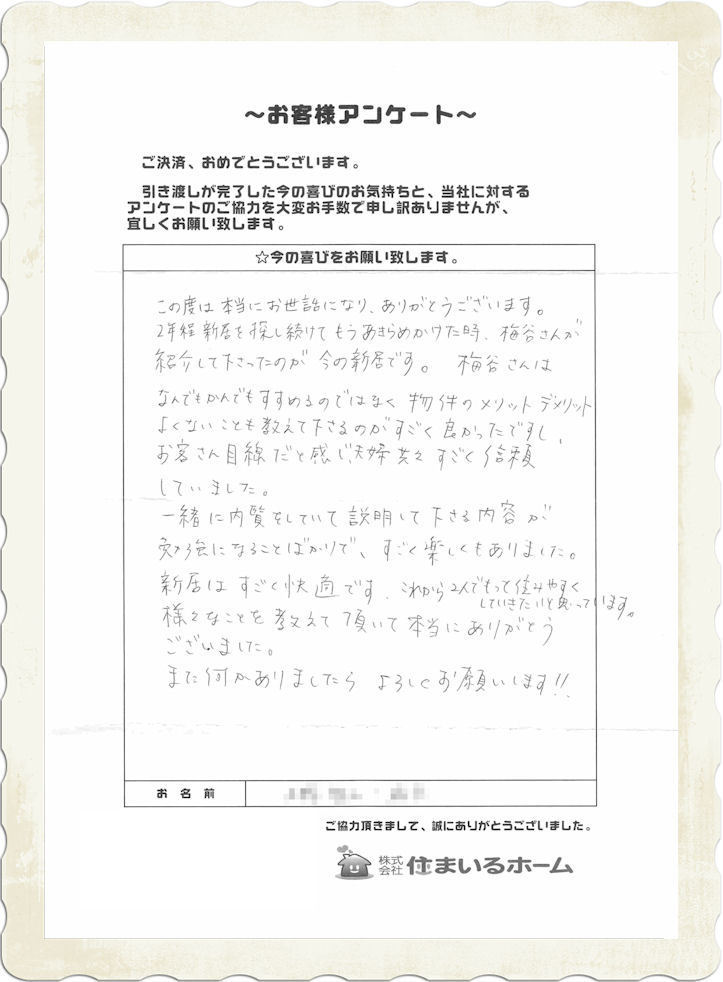 ～お客様アンケート～
ご決済、おめでとうございます。
引き渡しが完了した今の喜びのお気持ちと、当社に対する
アンケートのご協力を大変お手数で申し訳ありませんが、
宜しくお願い致します。
☆今の喜びをお願い致します。
この度は本当にお世話になり、ありがとうございます。
2年程新居を探し続けてもうあきらめかけた時、梅谷さんが
紹介して下さったのが今の新居です。 梅谷さんは
なんでもかんでもすすめるのではなく物件のメリットデメリット
よくないことも教えて下さるのがすごく良かったですし、
お客さん目線だと感じ夫婦共々すごく信頼
していました。
一緒に内覧をしていて説明して下さる内容が
勉強になることばかりで、すごく楽しくもありました。
新居はすごく快適です。これから2人でもって住みやすく
していきたいと思っています。
様々なことを教えて頂いて本当にありがとう
ございました。
また何かありましたらよろしくお願いします!!
お名前
ご協力頂きまして、誠にありがとうございました。
株式会社 住まいるホーム